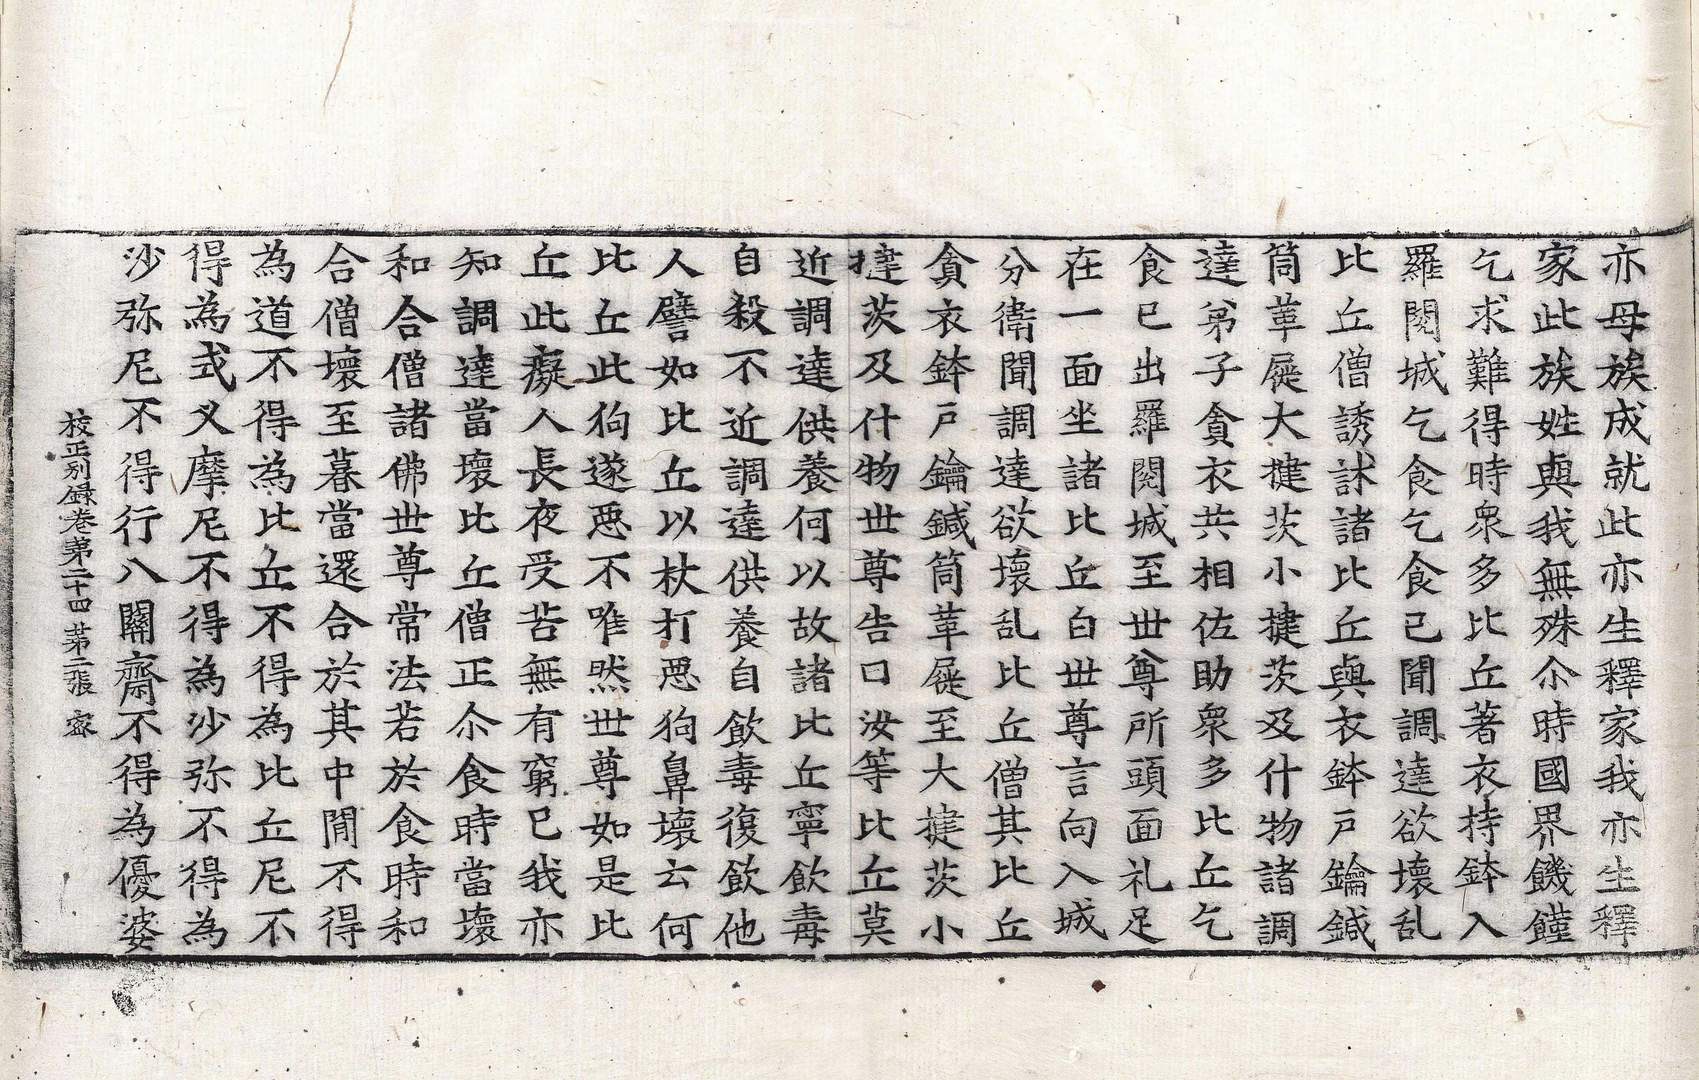 亦母族成就此亦生釋家我亦生釋
家此族姓與我無殊尒時國界饑饉
乞求難得時衆多比丘著衣持鉢入
羅閱城乞食乞食已聞調達欲壞乱
比丘僧誘訹諸比丘與衣鉢戸鑰鍼
筒革屣大揵茨小揵茨及什物諸調
達弟子貪衣共相佐助衆多比丘乞
食已出羅閱城至世尊所頭面礼足
在一面坐諸比丘白世尊言向入城
分衛聞調達欲壞乱比丘僧其比丘
貪衣鉢戸鑰鍼筒革屣至大揵茨小
揵茨及什物世尊告曰汝等比丘莫
近調達供養何以故諸比丘寧飲毒
自殺不近調達供養自飲毒復飲他
人譬如比丘以杖打惡狗鼻壞云何
比丘此狗遂惡不唯然世尊如是比
丘此癡人長夜受苦無有窮已我亦
知調達當壞比丘僧正尒食時當壞
和合僧諸佛世尊常法若於食時和
合僧壞至暮當還合於其中閒不得
為道不得為比丘不得為比丘尼不
得為式叉摩尼不得為沙弥不得為
沙弥尼不得行八關齋不得為優婆
校正別録卷第二十四 第二張 宻